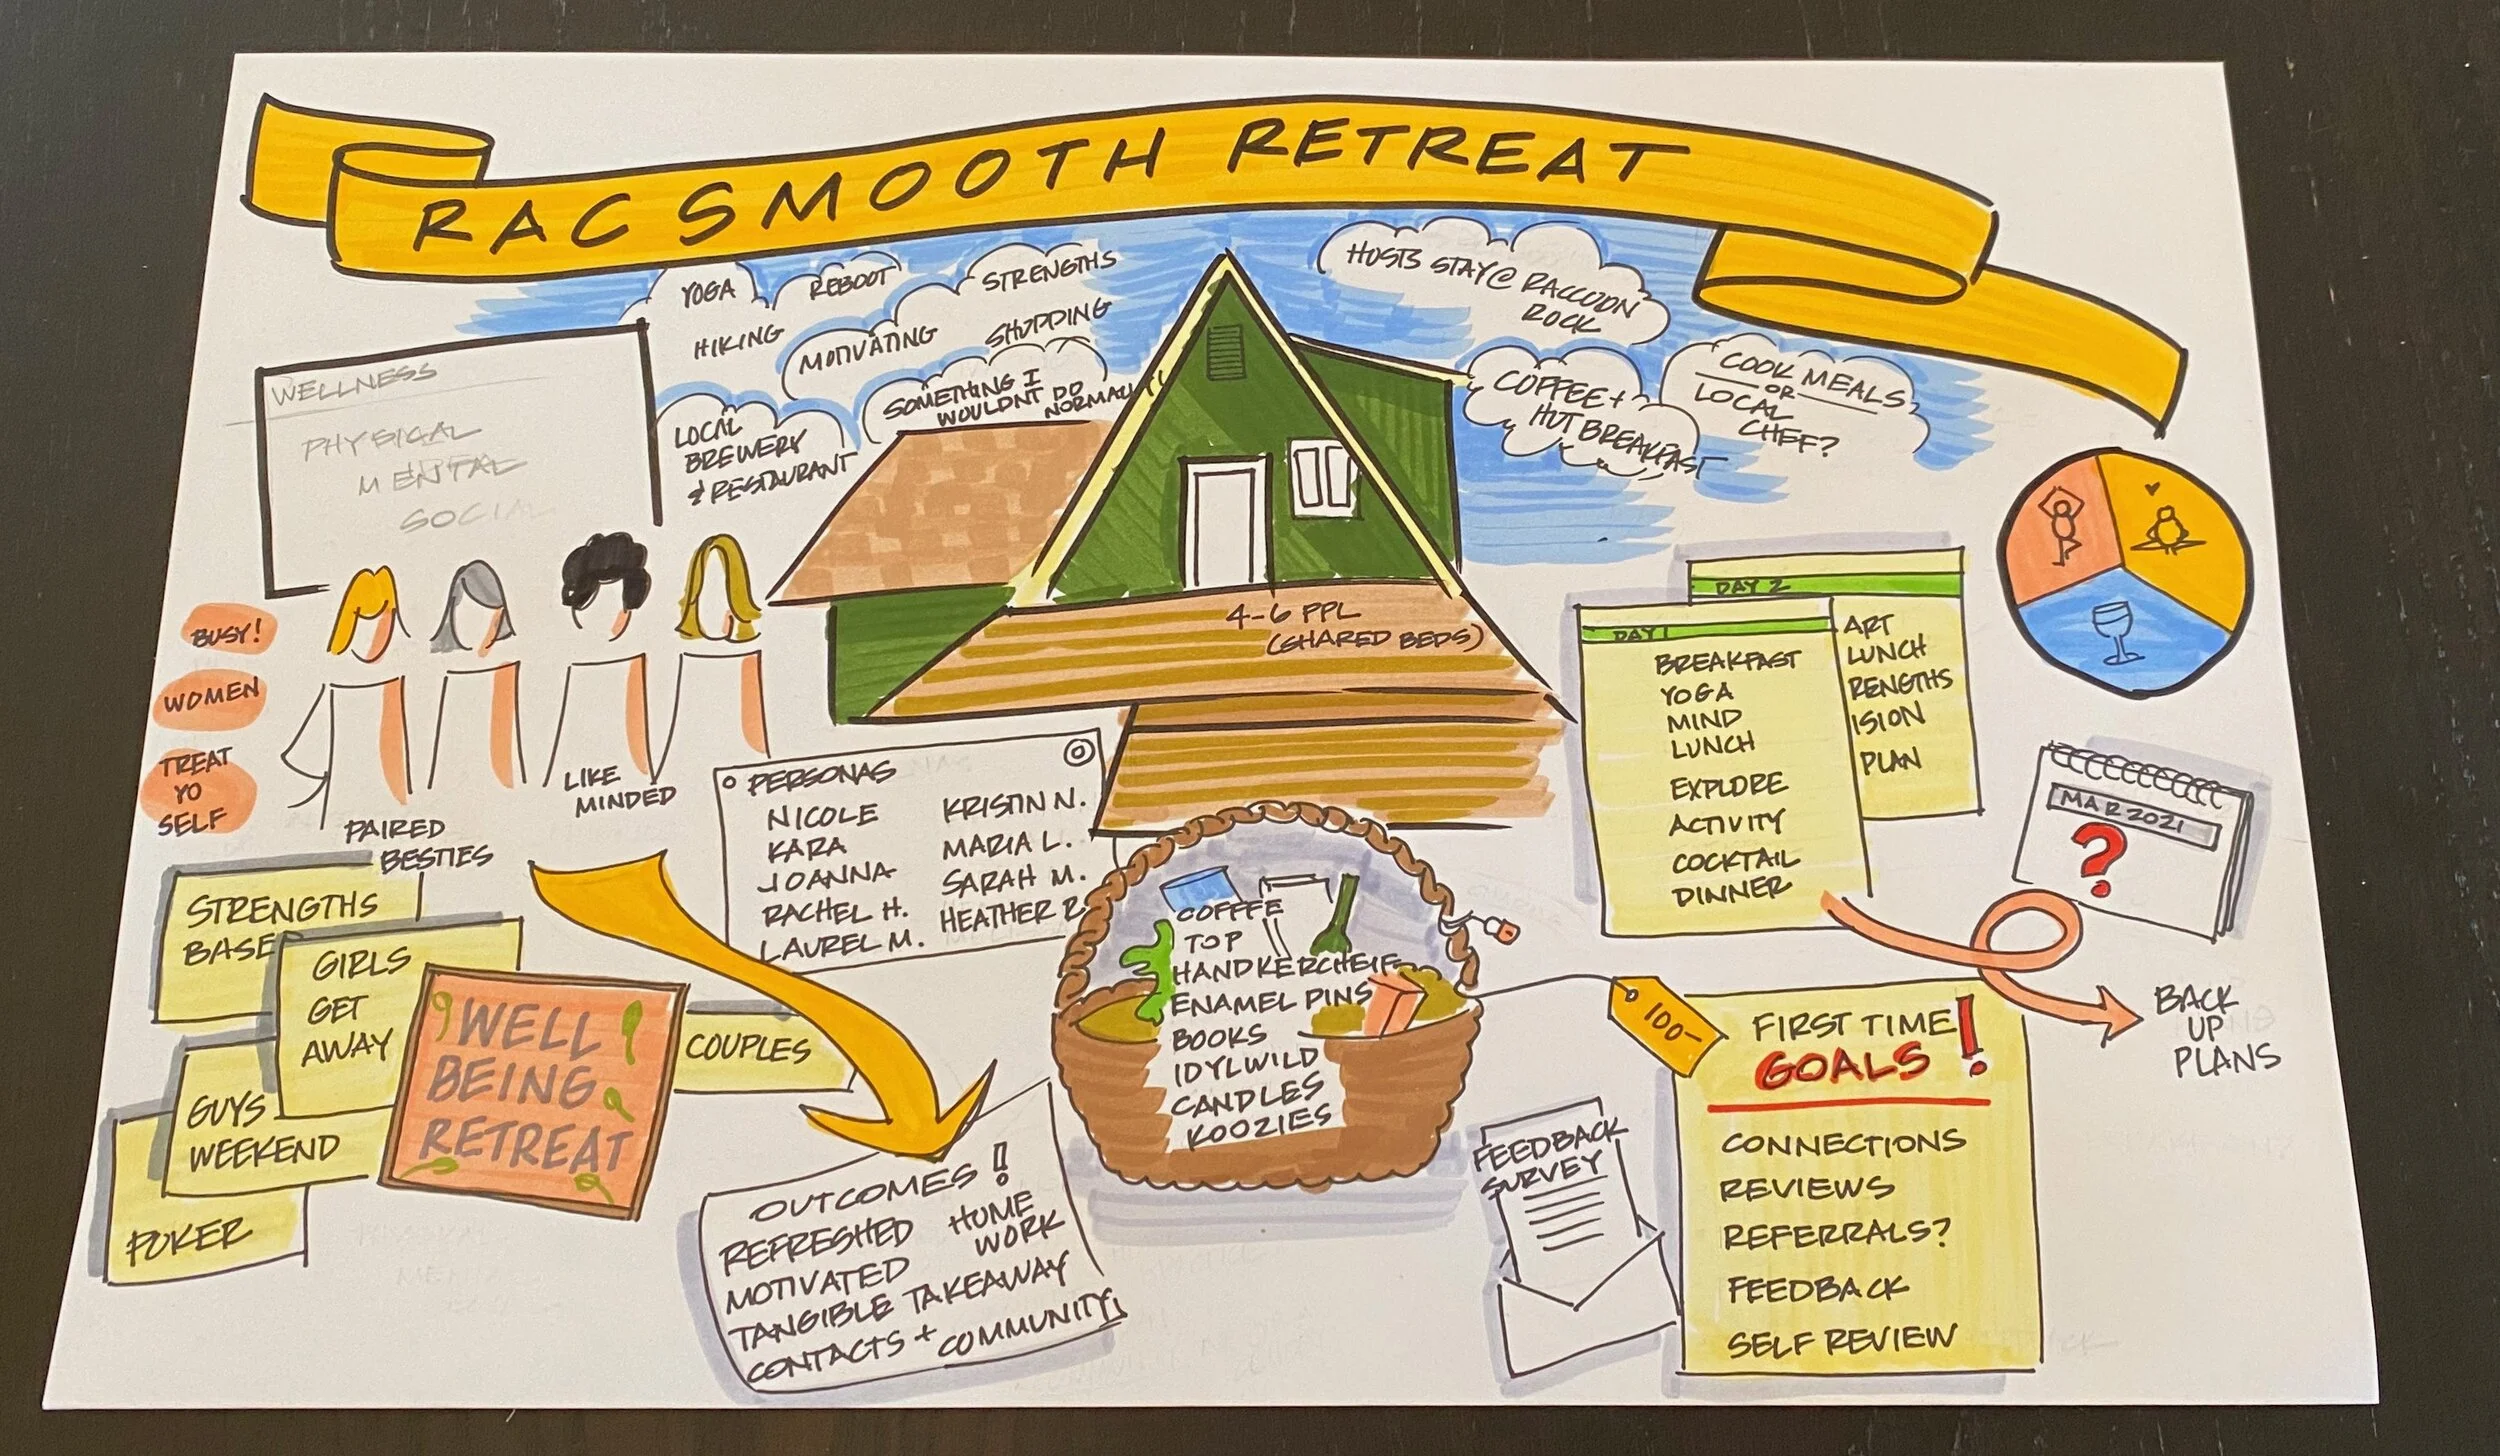 RAC SMOOTH RETREAT
YOGA
HIKING
REBOOT
MOTIVATING
STRENGTHS
SHOPPING
SOMETHING I
WOULDNT DO
NORMALLY
LOCAL
BREWERY
& RESTAURANT
HOSTS STAY @ RACCOON
ROCK
COFFEE +
HOT BREAKFAST
COOK MEALS
OR
LOCAL
CHEF?
WELLNESS
PHYSICAL
MENTAL
SOCIAL
BUSY!
WOMEN
TREAT
YO
SELF
PAIRED
BESTIES
LIKE
MINDED
4-6 PPL
(SHARED BEDS)
PERSONAS
NICOLE
KARA
JOANNA
RACHEL H.
LAUREL M.
KRISTIN N.
MARIA L.
SARAH M.
HEATHER R.
DAY 1
BREAKFAST
YOGA
MIND
LUNCH
EXPLORE
ACTIVITY
COCKTAIL
DINNER
DAY 2
ART
LUNCH
RENGTHS
ISION
PLAN
MAR 2021
?
BACK
UP
PLANS
STRENGTHS
BASE
GIRLS
GET
AWAY
GUYS
WEEKEND
POKER
WELL
BEING
RETREAT
COUPLES
OUTCOMES!
REFRESHED
MOTIVATED
HOME
WORK
TANGIBLE TAKEAWAY
CONTACTS + COMMUNITY
COFFEE
TOP
HANDKERCHEIF
ENAMEL PINS
BOOKS
IDYLWILD
CANDLES
KOOZIES
100-
FEEDBACK
SURVEY
FIRST TIME
GOALS!
CONNECTIONS
REVIEWS
REFERRALS?
FEEDBACK
SELF REVIEW